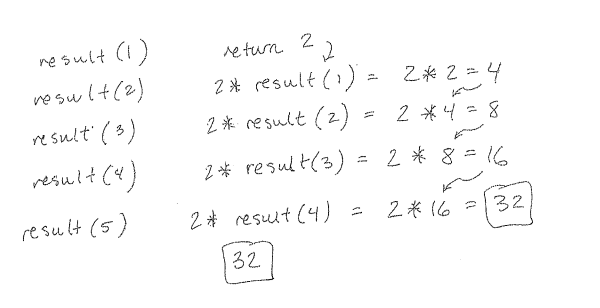 result (1) return 2
result (2) 2 * result (1) = 2 * 2 = 4
result (3) 2 * result (2) = 2 * 4 = 8
result (4) 2 * result (3) = 2 * 8 = 16
result (5) 2 * result (4) = 2 * 16 = 32
32